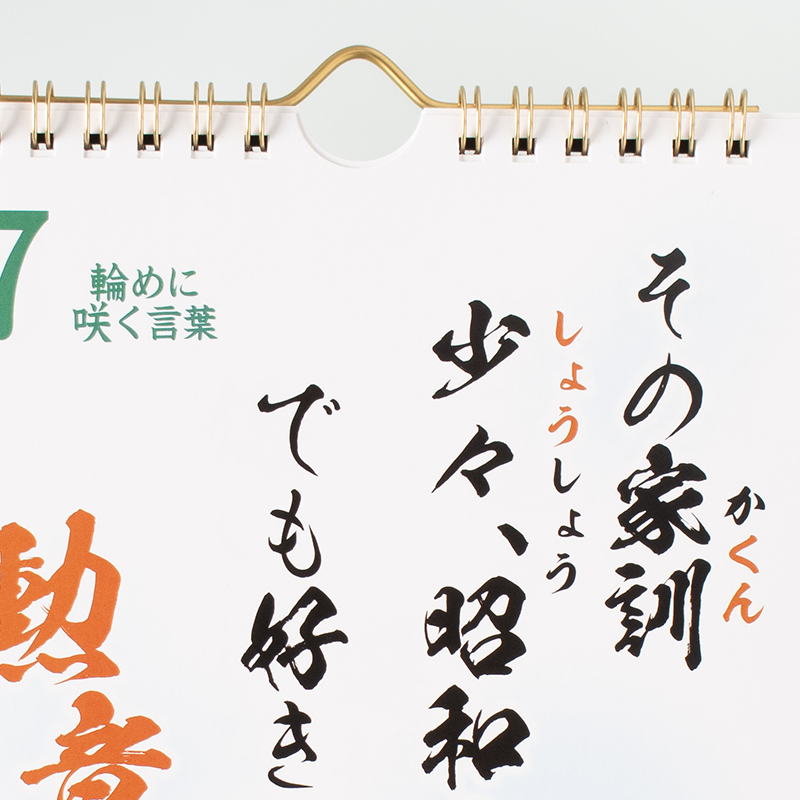 その家訓
かくん
少々、昭和
しょうしょう
でも好き
7
輪めに
咲く言葉
勲
音